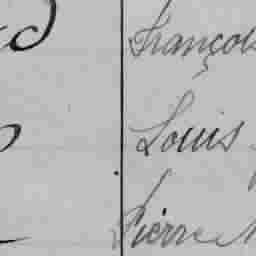 François
Louis
Pierre